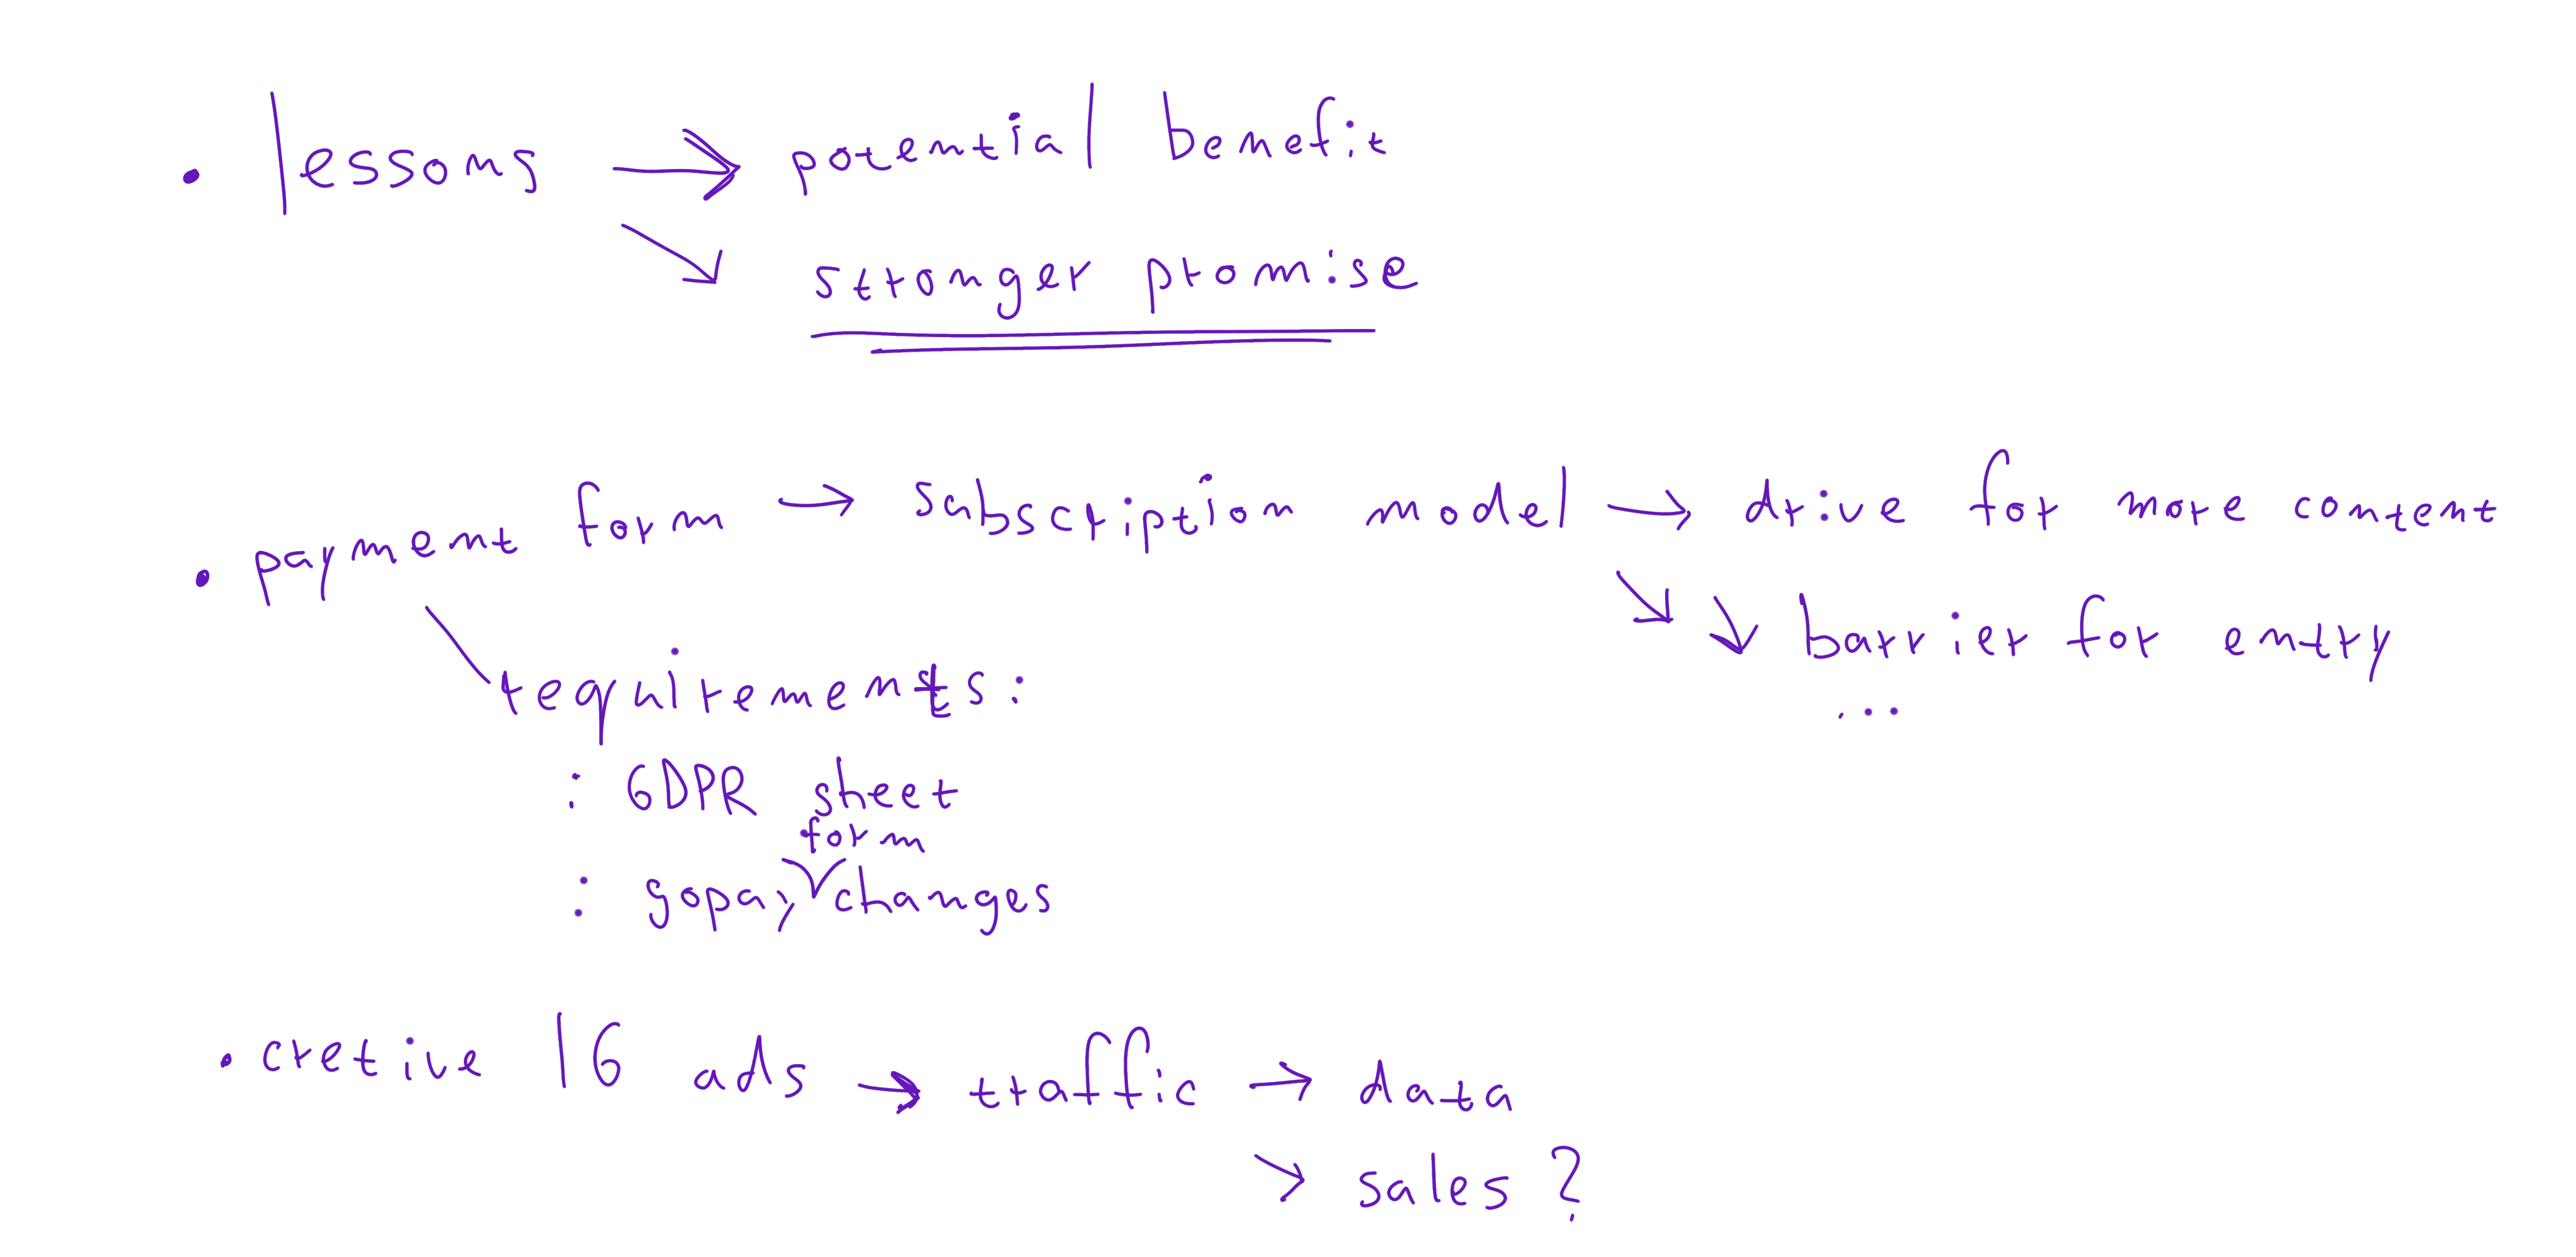 • lessons → potential benefit
↘ stronger promise
• payment form → subscription model → drive for more content
↘ ↓ barrier for entry
...
requirements:
: GDPR sheet
form
: gopay changes
• cretive IG ads → traffic → data
↘ sales?